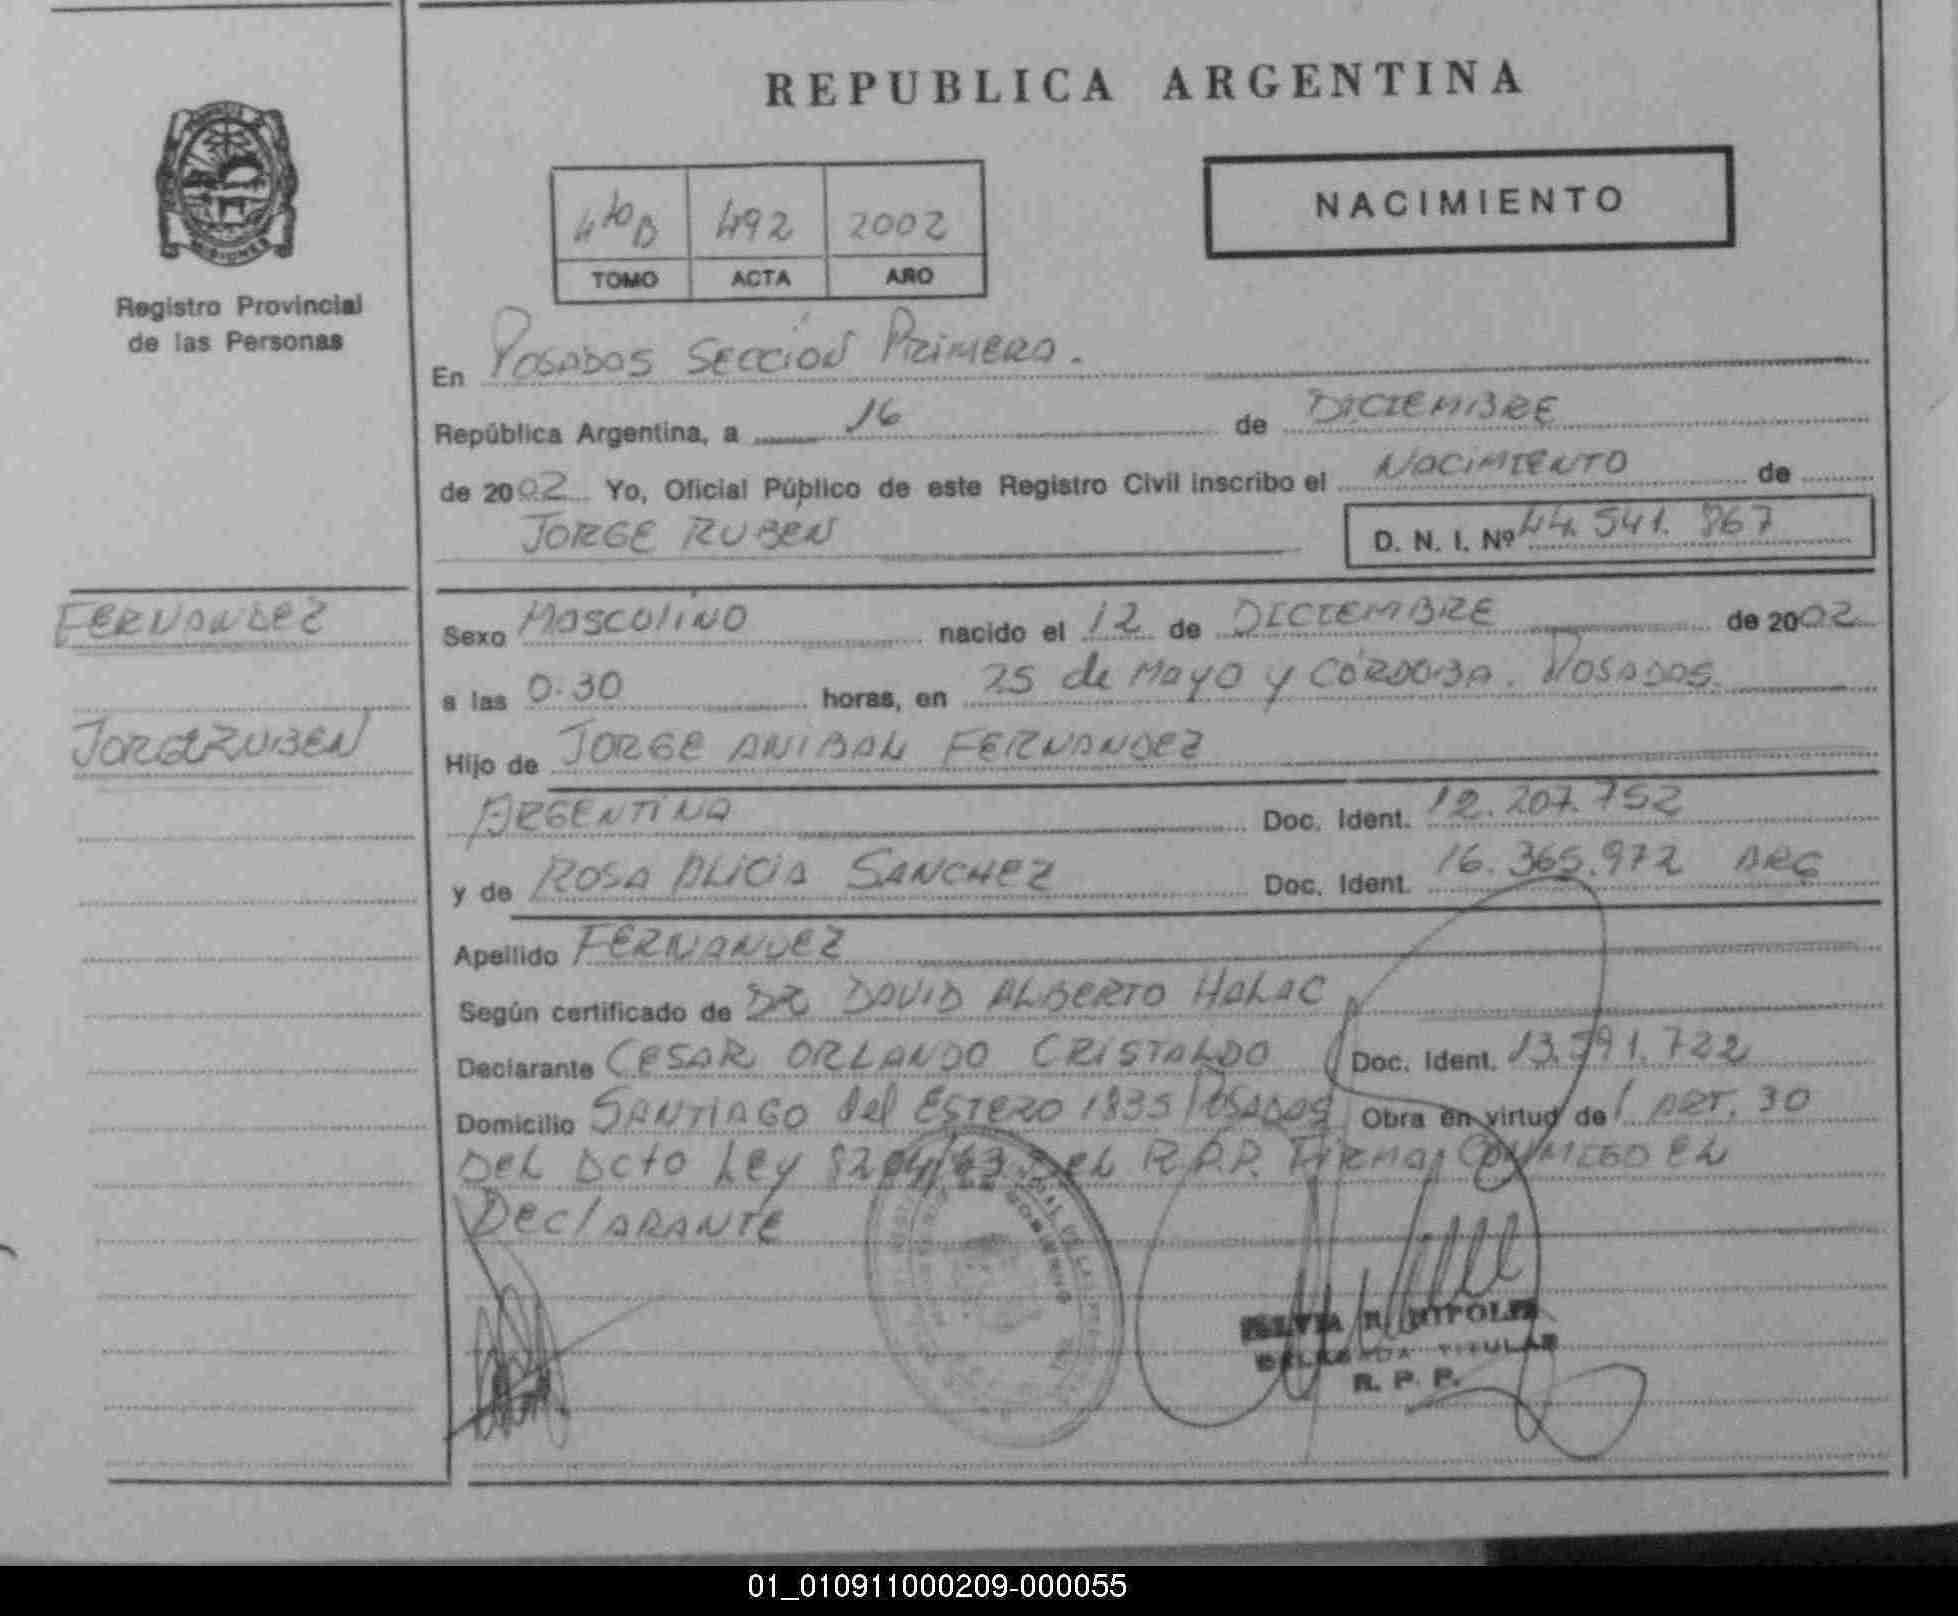 REPUBLICA ARGENTINA
NACIMIENTO
4to B 492 2002
TOMO ACTA AÑO
Registro Provincial
de las Personas
En POSADAS SECCION PRIMERA.
República Argentina, a 16 de DICIEMBRE
de 2002 Yo, Oficial Público de este Registro Civil inscribo el NACIMIENTO de
JORGE RUBEN D. N. I. Nº 44.541.867
FERNANDEZ
JORGE RUBEN
Sexo MASCULINO nacido el 12 de DICIEMBRE de 2002
a las 0.30 horas, en 25 de MAYO y CÓRDOBA. POSADAS.
Hijo de JORGE ANIBAL FERNANDEZ
ARGENTINA Doc. Ident. 12.207.752
y de ROSA ALICIA SANCHEZ Doc. Ident. 16.365.972 ARG
Apellido FERNANDEZ
Según certificado de DR DAVID ALBERTO HALAC
Declarante CESAR ORLANDO CRISTALDO Doc. Ident. 13.591.722
Domicilio SANTIAGO del ESTERO 1835 POSADAS Obra en virtud de ART. 30
DEL DCTO LEY 8204/63 DEL R.P.P. FIRMA CONMIGO EL
DECLARANTE
SILVIA R. HIPOLIT
DELEGADA TITULAR
R. P. P.
01_010911000209-000055